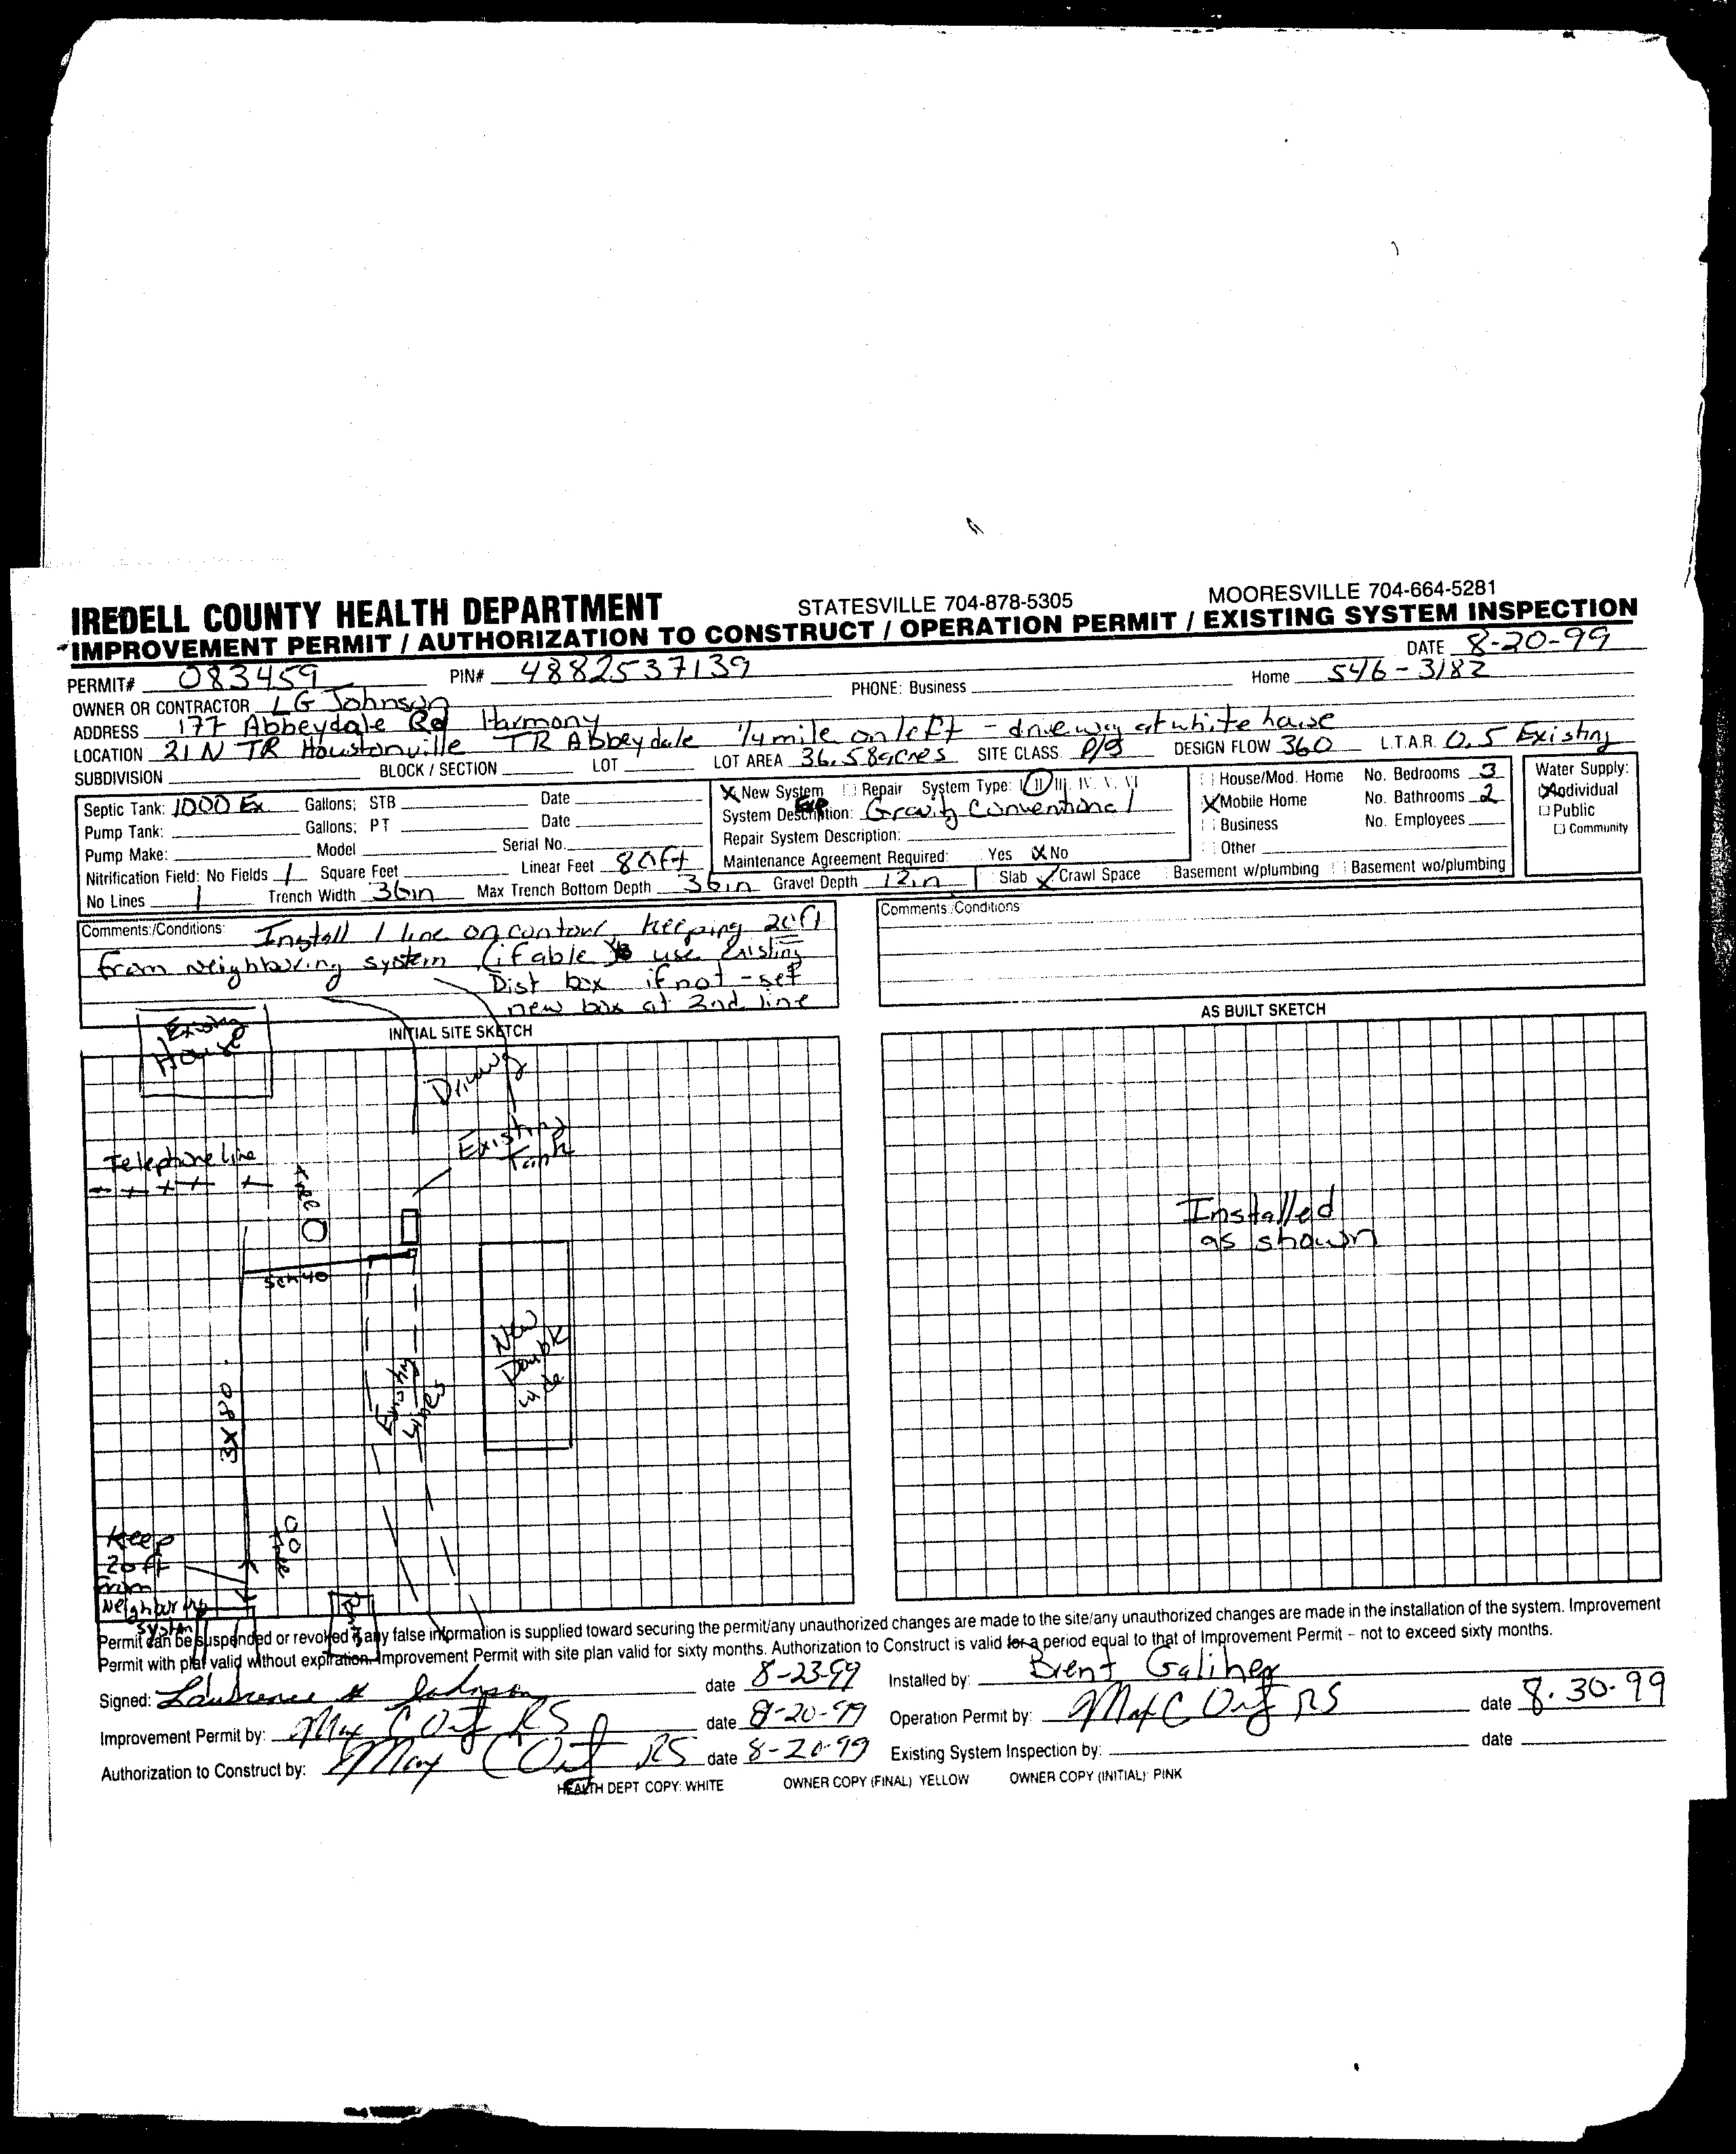 IREDELL COUNTY HEALTH DEPARTMENT STATESVILLE 704-878-5305 MOORESVILLE 704-664-5281
IMPROVEMENT PERMIT / AUTHORIZATION TO CONSTRUCT / OPERATION PERMIT / EXISTING SYSTEM INSPECTION
DATE 8-20-99
PERMIT# 083459 PIN# 4882537139
OWNER OR CONTRACTOR LG Johnson PHONE: Business Home 546-3182
ADDRESS 177 Abbeydale Rd Harmony
LOCATION 21 N TR Houstonville TR Abbeydale 1/4 mile on left - driveway at white house
SUBDIVISION BLOCK / SECTION LOT LOT AREA 36.58 acres SITE CLASS P/S DESIGN FLOW 360 L.T.A.R. 0.5 Existing
Septic Tank: 1000 Ex Gallons; STB Date
Pump Tank: Gallons; PT Date
Pump Make: Model Serial No.
Nitrification Field: No Fields 1 Square Feet Linear Feet 80ft
No Lines 1 Trench Width 36in Max Trench Bottom Depth 36in Gravel Depth 12in
X New System Repair System Type: I II III IV. V. VI
System Description: Exp Gravity Conventional
Repair System Description:
Maintenance Agreement Required: Yes X No
Slab ✓ Crawl Space Basement w/plumbing Basement wo/plumbing
House/Mod. Home No. Bedrooms 3
X Mobile Home No. Bathrooms 2
Business No. Employees
Other
Water Supply:
X Individual
Public
Community
Comments:/Conditions: Install 1 line on contour keeping 20ft
from neighboring system (if able to use existing
Dist box if not - set
new box at 2nd line
Comments:/Conditions:
INITIAL SITE SKETCH
AS BUILT SKETCH
Existing
House
Driveway
Existing
Tank
Telephone line
tree
sch 40
New
Double
wide
Existing
Lines
3X80
tree
Keep
20 ft
from
Neighboring
System
Installed
as shown
Permit can be suspended or revoked if any false information is supplied toward securing the permit/any unauthorized changes are made to the site/any unauthorized changes are made in the installation of the system. Improvement
Permit with plat valid without expiration. Improvement Permit with site plan valid for sixty months. Authorization to Construct is valid for a period equal to that of Improvement Permit – not to exceed sixty months.
Signed: Lawrence Johnson date 8-23-99 Installed by: Brent Galiher
Improvement Permit by: Max C RS date 8-20-99 Operation Permit by: Max C RS date 8-30-99
Authorization to Construct by: Max C RS date 8-20-99 Existing System Inspection by: date
HEALTH DEPT COPY: WHITE OWNER COPY (FINAL) YELLOW OWNER COPY (INITIAL) PINK